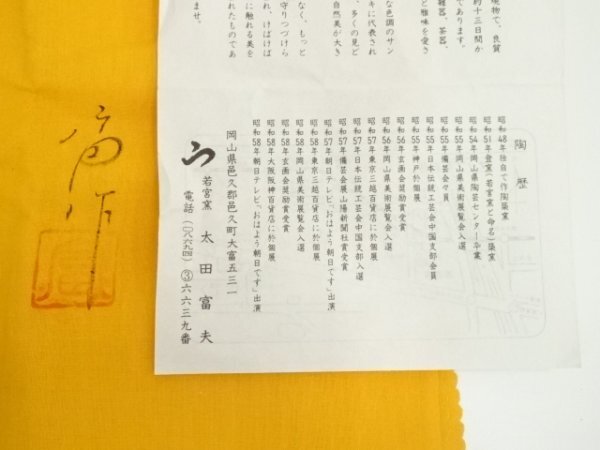 焼物で、良質
約十三日間か
であります。
雑器、茶器、
と雅味を愛さ
な色調のサン
キに代表され
、多くの見ど
自然美が大き
なく、もっと
守りつづけら
れ、けばけば
に触れる美を
れたものであ
ませ。
陶歴
昭和48年独自で作陶築業
昭和51年登窯(若宮窯と命名)築業
昭和54年岡山県陶芸センター卒業
昭和55年岡山県美術展覧会入選
昭和55年備芸会々員
昭和55年日本伝統工芸会中国支部会員
昭和55年神戸於個展
昭和56年玄画会奨励賞受賞
昭和56年岡山県美術展覧会入選
昭和57年東京三越百貨店に於個展
昭和57年日本伝統工芸会中国支部入選
昭和57年備芸会展山陽新聞社賞受賞
昭和57年朝日テレビ、「おはよう朝日です」出演
昭和58年東京三越百貨店に於個展
昭和58年岡山県美術展覧会入選
昭和58年玄画会奨励賞受賞
昭和58年大阪阪神百貨店に個展
昭和58年朝日テレビ、「おはよう朝日です」出演
岡山県邑久郡邑久町大富五三一
う 若宮窯 太田富夫
電話(〇八六九四)③六六三九番